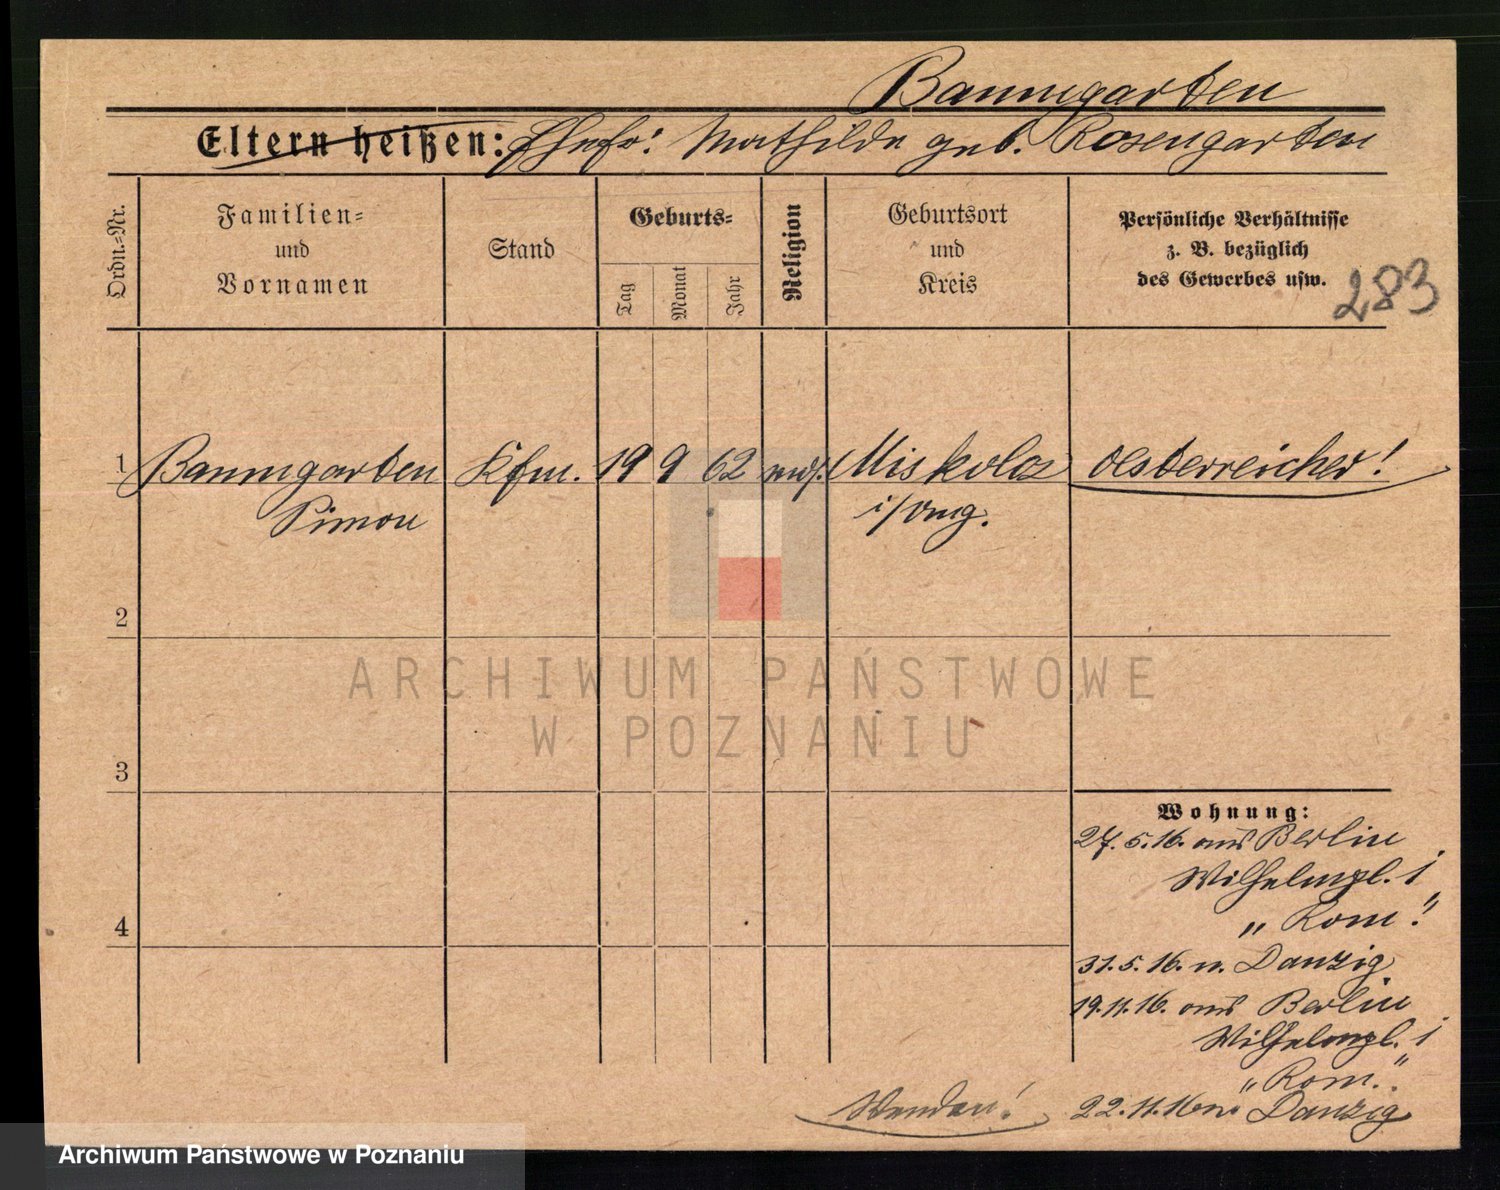 Baumgarten
Eltern heißen: Ehefr: Mathilde geb. Rosengarten
Ordn.=Nr.
Familien=
und
Vornamen
Stand
Geburts=
Tag
Monat
Jahr
Religion
Geburtsort
und
Kreis
Persönliche Verhältnisse
z. B. bezüglich
des Gewerbes usw.
283
1 Baumgarten Kfm. 19 9 62 mos. Miskolcz oesterreicher!
Simon i/Ung.
2
3
4
Wohnung:
27.5.16. aus Berlin
Wilhelmpl. 1
„ Rom."
31.5.16. n. Danzig
19.11.16. aus Berlin
Wilhelmpl. 1
„Rom."
22.11.16 n. Danzig
Wenden!
ARCHIWUM PAŃSTWOWE
W POZNANIU
Archiwum Państwowe w Poznaniu